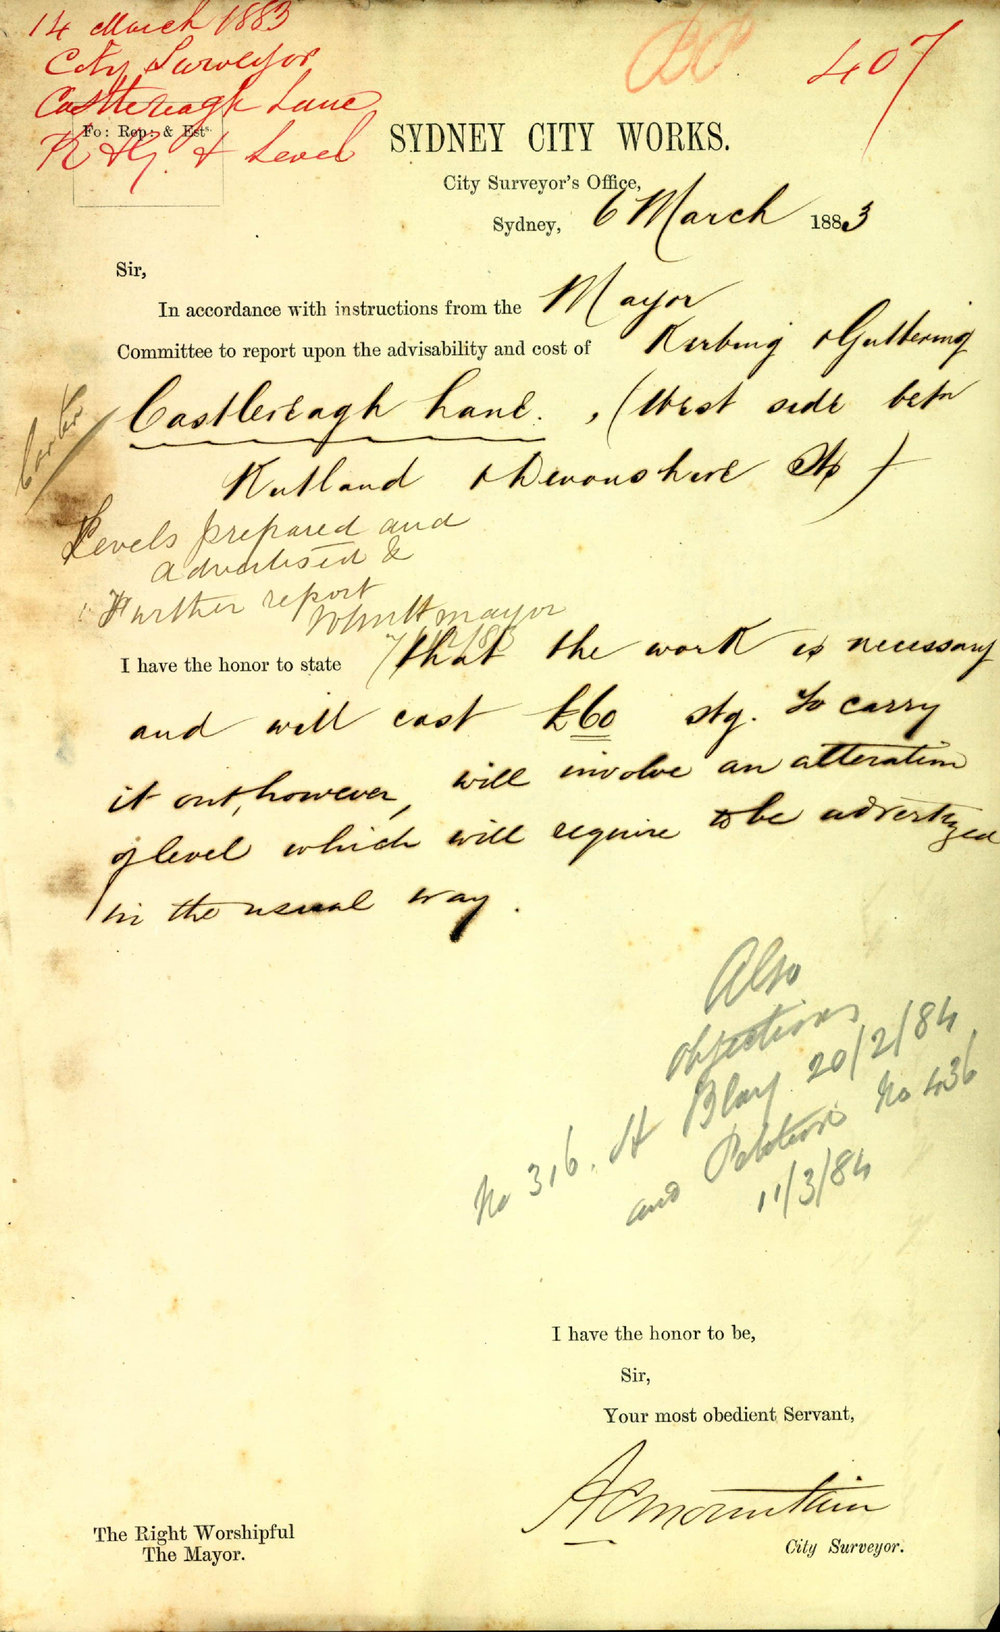 14 March 1883
City Surveyor
Castlereagh Lane
K & G. & Level
407
Fo: Rep: & Ests.
SYDNEY CITY WORKS.
City Surveyor's Office,
Sydney, 6 March 1883
Sir,
In accordance with instructions from the Mayor
Committee to report upon the advisability and cost of Kerbing & Guttering
Castlereagh Lane. , (West side betn
Rutland & Devonshire Sts)
Carter
Levels prepared and
advertised &
Further report
mayor
I have the honor to state that the work is necessary
and will cost £60 stg. To carry
it out, however, will involve an alteration
of level which will require to be advertized
in the usual way.
Also
objections
No 316. H Blay 20/2/84
and Petition No 436
11/3/84
I have the honor to be,
Sir,
Your most obedient Servant,
A C Mountain
City Surveyor.
The Right Worshipful
The Mayor.